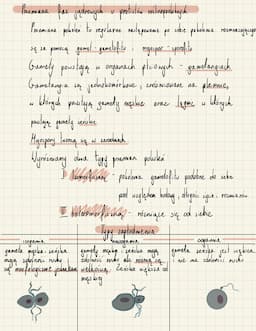 Przemiana faz jądrowych u protistów
Przemiana pokoleń to regularne następowanie po sobie pokolenia rozmnażającego
się za pomocą gamet - gametofitu i mejospor - sporofitu
Gamety powstają w organach płciowych - gametangiach
Gametangia są jednokomórkowe i zróżnicowane na plemnie,
w których powstają gamety męskie oraz lęgnie w których
powstają gamety żeńskie
Mejospory tworzą się w zarodniach
Wyróżniamy dwa typy przemian pokoleń
I izomorficzna - pokolenia gametofitu podobne do siebie
pod względem budowy, długości życia, rozmiarów
II heteromorficzna - różniące się od siebie
Typy zapłodnienia
izogamia anizogamia oogamia
gameta męska i żeńska gamety męska żeńska mają gameta żeńska jest większa
mają zdolność ruchu i zdolność ruchu ale różnią się i nie ma zdolności ruchu
są morfologicznie jednakowe wielkością, żeńska większa od
męskiej